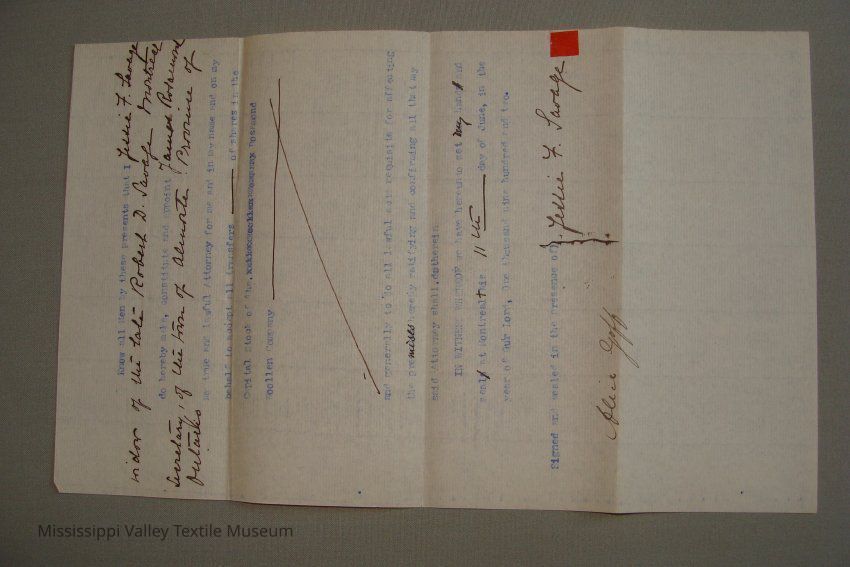 Know all men by these presents that I Jessie F. Savage
widow of the late Robert D. Savage Montreal
do hereby make, constitute and appoint James Rosamond
Secretary, of the town of Almonte Province of
Ontario
my true and lawful Attorney for me and in my name and on my
behalf to accept all transfers of shares in the
Capital Stock of the Rosamond
Woollen Company
and generally to do all lawful acts requisite for effecting
the premises hereby ratifying and confirming all that my
said Attorney shall do therein
IN WITNESS WHEREOF we have hereunto set my hand and
seal at Montreal this 11th day of June, in the
year of Our Lord, One thousand nine hundred and two.
Signed and sealed in the presence of Jessie F. Savage
Jessie F. Savage
Alice Goff
Mississippi Valley Textile Museum